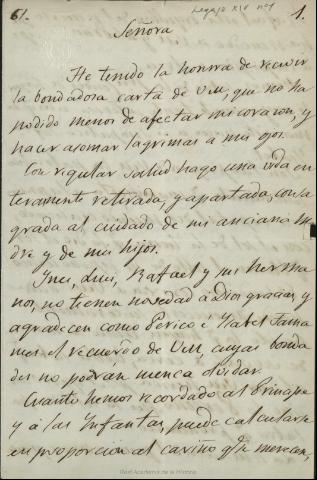 61. Legajo XIV nº 1 1.
Señora
He tenido la honrra de recivir
la bondadosa carta de V.M, que no ha
podido menos de afectar mi corazon, y
hacer asomar lagrimas a mis ojos.
Con regular salud hago una vida en
teramente retirada, y apartada, consa
grada al cuidado de mi anciana Ma
dre y de mis hijos.
Ynes, Luis, Rafael y mis herma
nos, no tienen novedad a Dios gracias, y
agradecen como Perico é Ysabel
el recuerdo de V.M, cuyas bonda
des no podrán nunca olvidar.
Cuanto hemos recordado al Principe
y á las Ynfantas, puede calcularse
en proporcion al cariño qe merecen,
Real Academia de la Historia